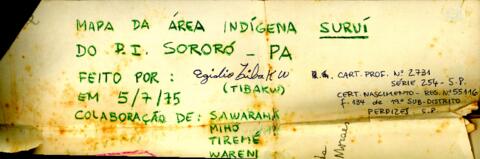 MAPA DA ÁREA INDÍGENA SURUÍ
DO P.I. SORORÓ - PA
FEITO POR: Egidio Tibaku
(TIBAKU)
EM 5/7/75
COLABORAÇÃO DE: SAWARAMĀ
MIHÓ
TIREMÉ
WARENI
CART. PROF. Nº 2731
SÉRIE 254 - S.P.
CERT. NASCIMENTO - REG. Nº 55116
f. 134 de 19º SUB-DISTRITO
PERDIZES S.P.
Moraes